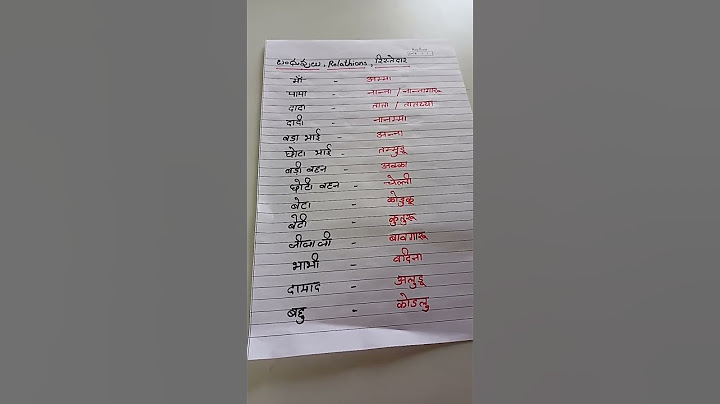 బంధువులు, Relathions, रिश्तेदार
माँ - अम्मा
पापा - नान्ना / नान्नागारू
दादा - ताता / तातय्या
दादी - नानम्मा
बड़ा भाई - अन्ना
छोटा भाई - तम्मुडू
बड़ी बहन - अक्का
छोटी बहन - चेल्ली
बेटा - कोडुकू
बेटी - कुतुरू
जीजा जी - बावगारू
भाभी - वदिना
दामाद - अलुडू
बहु - कोडलु